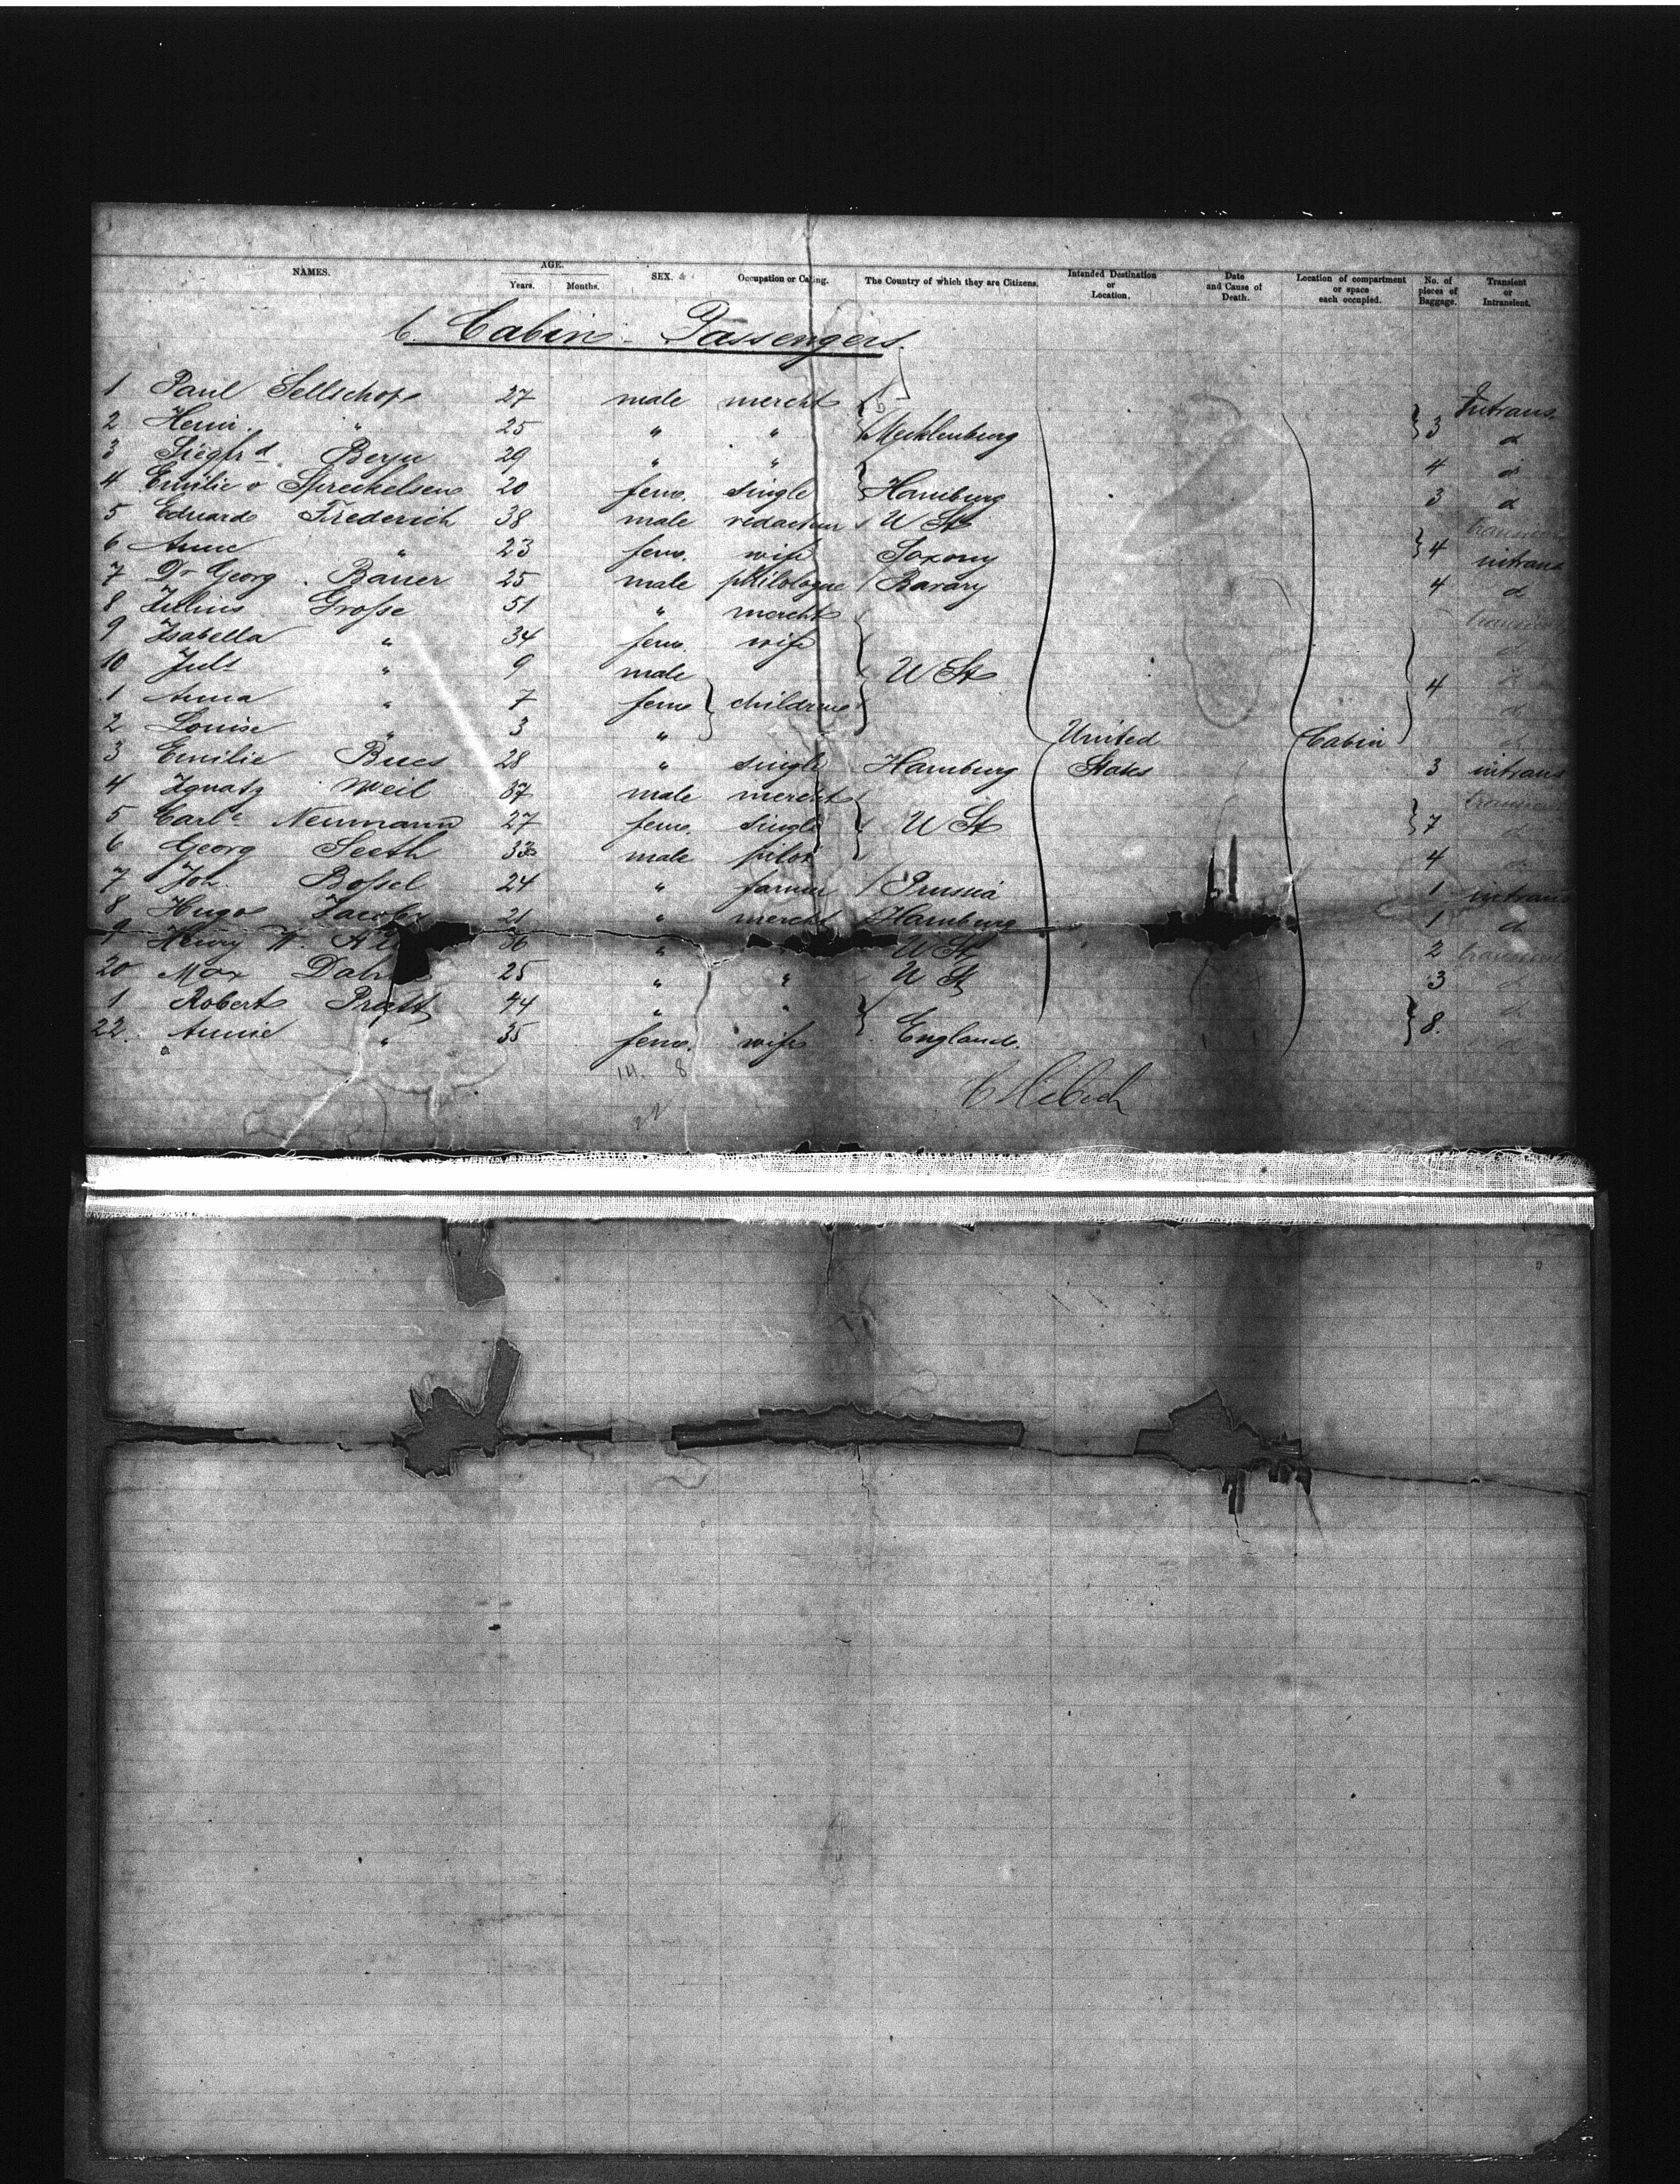 NAMES. AGE. Years. Months. SEX. Occupation or Calling. The Country of which they are Citizens. Intended Destination or Location. Date and Cause of Death. Location of compartment or space each occupied. No. of pieces of Baggage. Transient or Intransient.
Cabin - Passengers.
1 Paul Sellschopp 27 male mercht Intrans
2 Heinr. " 25 " " Mecklenburg } 3 d
3 Siegfrd 29 " " 4 d
4 Emilie v Spreckelsen 20 fem. single Hamburg 3 d
5 Eduard Frederich 38 male redacteur U St
6 Anne " 23 fem. wife Saxony } 4 intrans
7 Dr Georg Bauer 25 male philologue Bavary 4 d
8 Julius Grosse 51 " mercht
9 Isabella " 34 fem. wife d
10 Juls " 9 male U St
1 Anna " 7 fem } children 4 d
2 Louise " 3 " United Cabin
3 Emilie Bues 28 " single Hamburg States 3 intrans
4 Ignatz Weil 37 male mercht
5 Carle Neumann 27 fem. single U St } 7 d
6 Georg Seeth 33 male pilot 4 d
7 Joh. Bossel 24 " farmer Prussia 1 intrans
8 Hugo Jacoby 21 " mercht Hamburg 1 d
9 Henry W. 36 " U St 2
20 Max 25 " " U St 3 d
1 Robert Pratt 44 " " d
22. Annie " 35 fem. wife England. } 8. d
14. 8
22